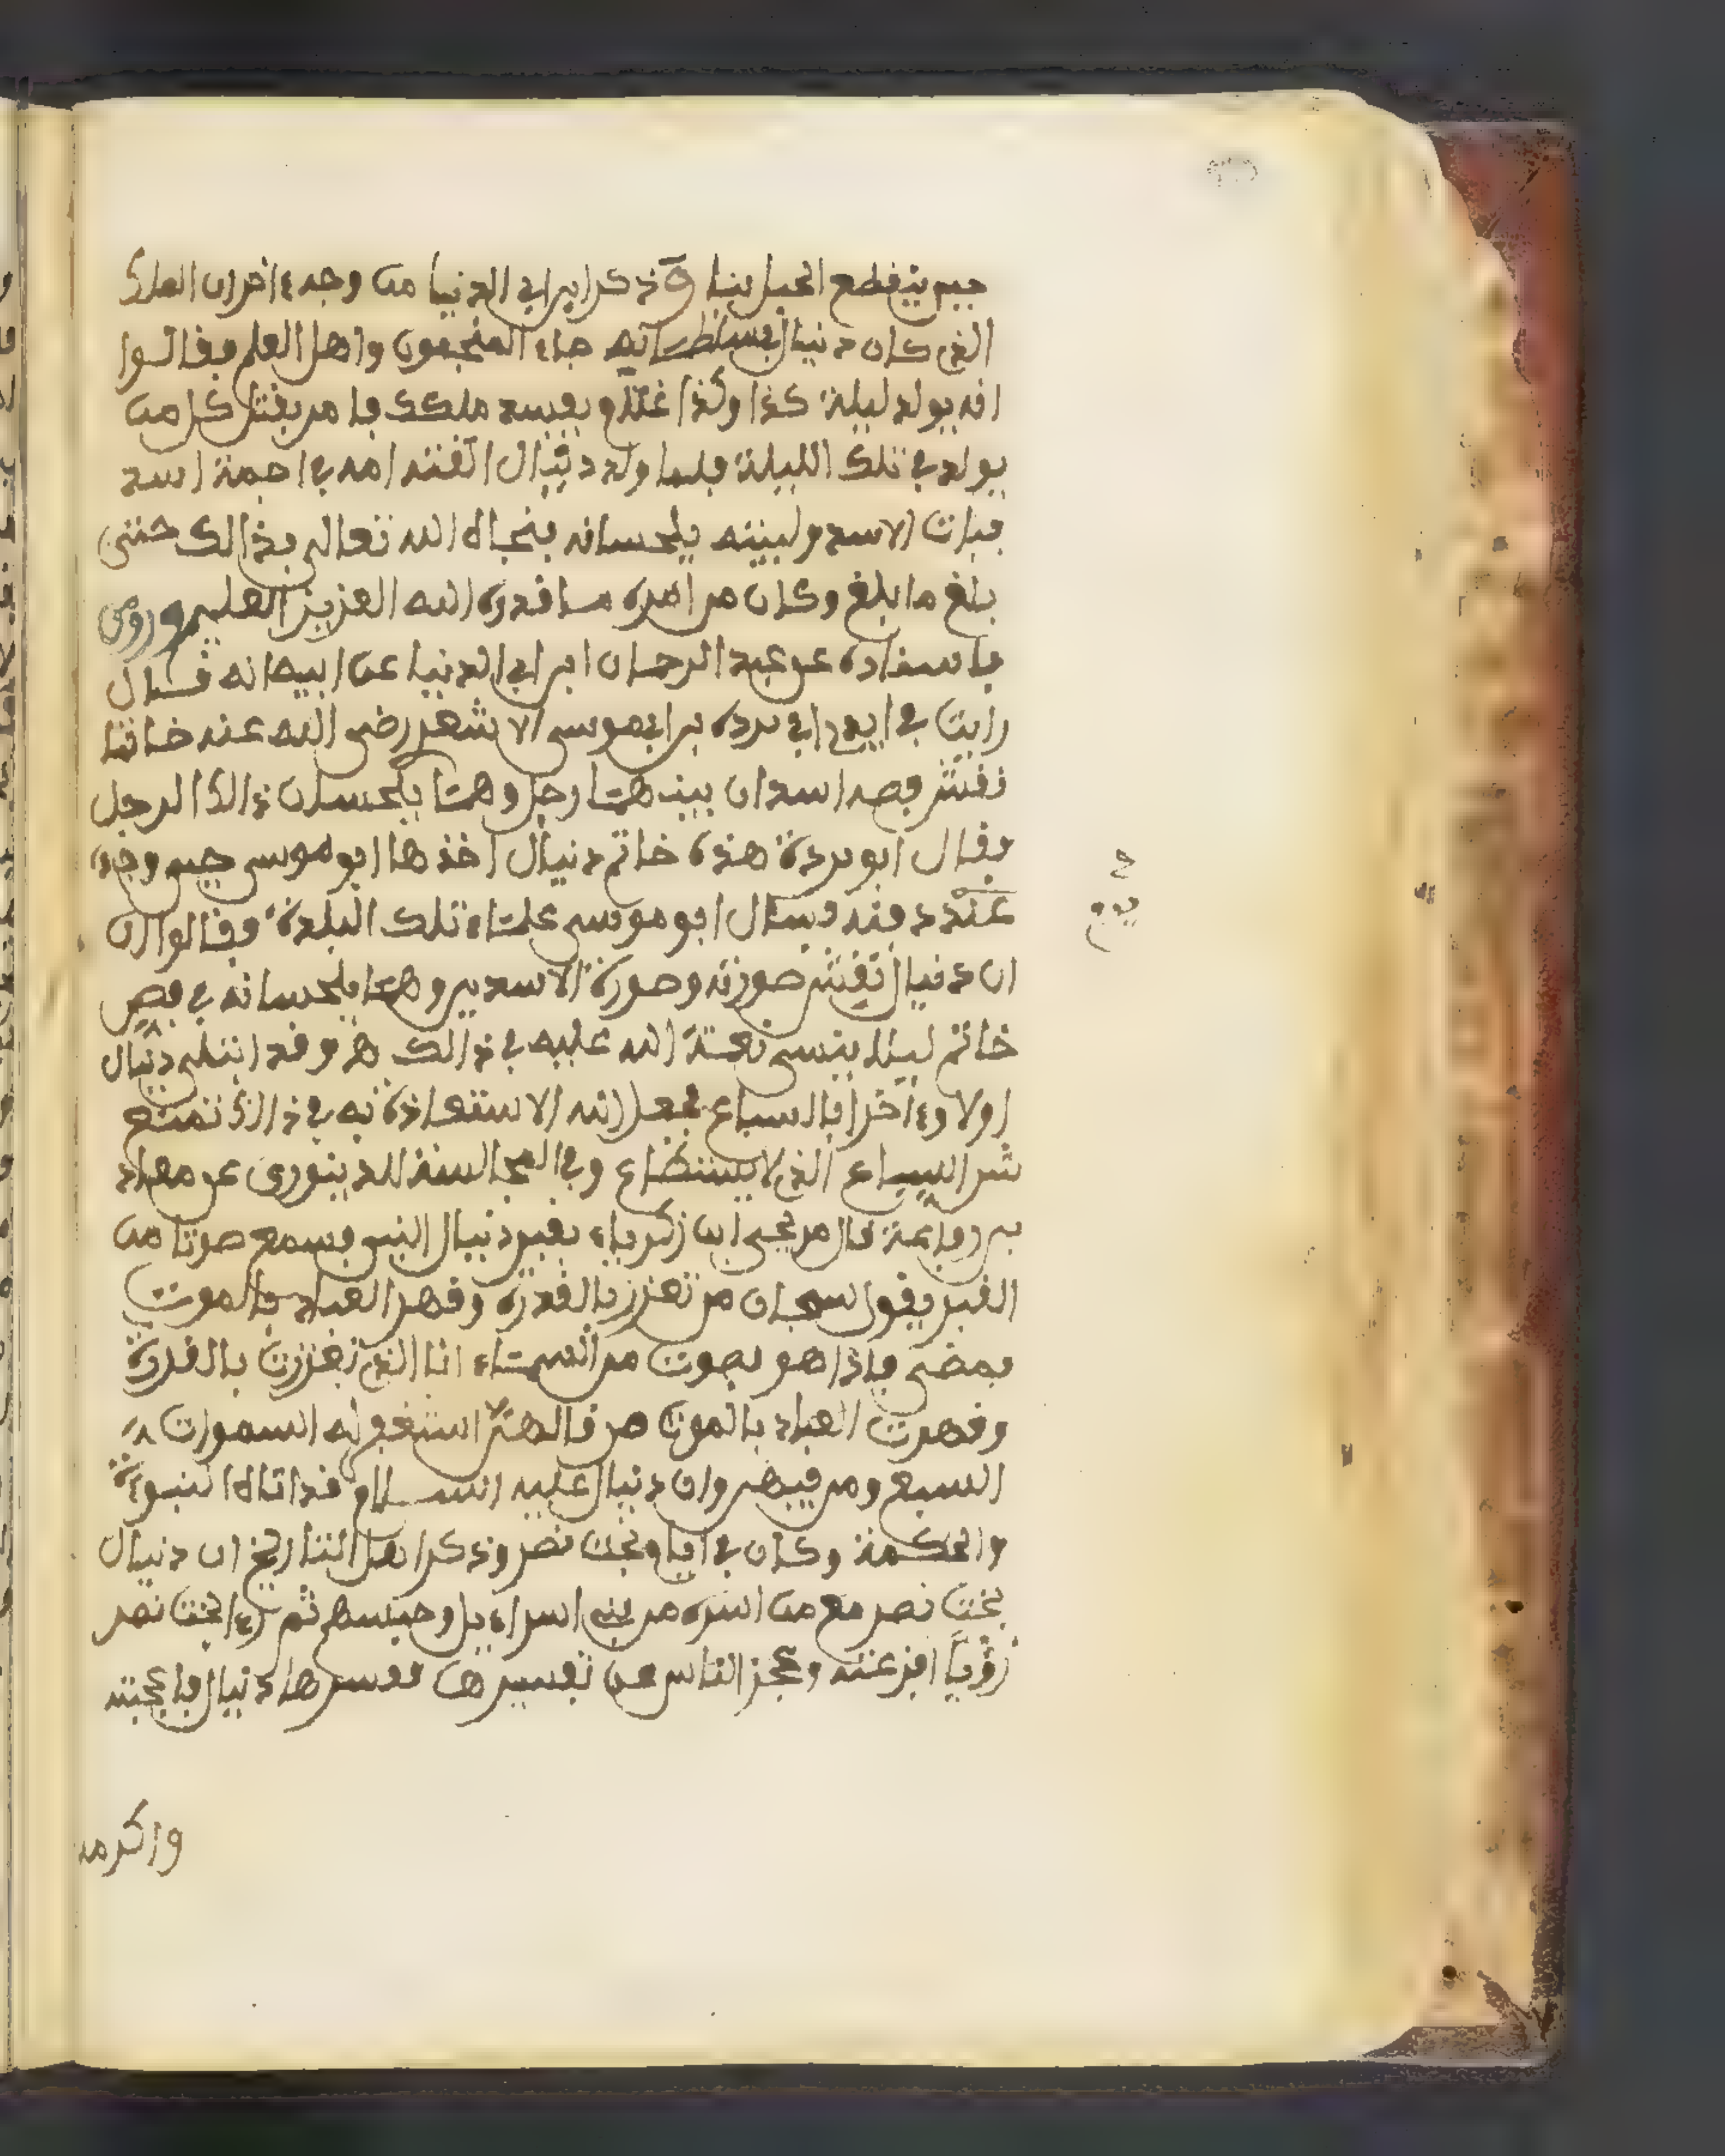 حين ينفطع الحبل بنا وذكر ابن ابي الدنيا من وجه ءاخر ان الملك
الذي كان دنيال في سلطانه جاءه المنجمون واهل العلم فقالوا
انه يولد ليلة كذا وكذا غلام يفسد ملكك فامر بقتل كل من
يولد في تلك الليلة فلما ولد دنيال القته امه في اجمة اسد
فبات الاسد ولبيته يلحسانه فنجاه الله تعالى بذالك حتى
بلغ ما بلغ وكان من امره ما قدره الله العزيز العليم وروى
باسناده عن عبد الرحمان ابن ابي الدنيا عن ابيه انه قال
رايت في ابي بردة بن ابي موسى الاشعر رضي الله عنه خاتما
نقش فصه اسدان بينهما رجل وهما يلحسان ذالك الرجل
فقال ابو بردة هذه خاتم دنيال اخذها ابو موسى حين وجده
عند دفنه فسال ابو موسى علماء تلك البلدة فقالوا ان
ان دنيال نقش صورته وصورة الاسدين وهما يلحسانه في فص
خاتم ليلا ينسى نعمة الله عليه في ذالك هـ وقد ابتلي دنيال
اولا وءاخرا بالسباع فجعل الله الاستعاذة به في ذالك تمنع
شر السباع الذي لا يستطاع وفي المجالسة للدينوري عن معاذ
بن رفاعة قال مر يحيى ابن زكرياء بقبر دنيال النبي فسمع صوتا من
القبر يقول سبحان من تعزز بالقدرة وقهر العباد بالموت
فمضى فاذا هو بصوت من السماء انا الذي تعززت بالقدرة
وقهرت العباد بالموت من قالهن استغفر له السموات
السبع ومن فيهن وان دنيال عليه السلام قد اتاه النبوءة
والحكمة وكان في ايام بخت نصر وذكر اهل التاريخ ان دنيال
بخت نصر مع من اسره من بني اسراءيل وحبسهم ثم رءا بخت نصر
رؤيا افزعته وعجز الناس عن تفسيرها ففسرها دنيال فاعجبته
واكرمه